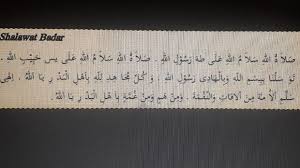 Shalawat Badar
صَلَا ةُ اللهِ سَلَا مُ اللهِ عَلَى طٰهَ رَسُوْلِ اللهِ . صَلَا ةُ اللهِ سَلَا مُ اللهِ عَلَى يس حَبِيْبِ اللهِ .
تَوَ سَّلْنَا بِبِسْمِ اللهِ وَبِالْهَادِى رَسُوْلِ اللهِ . وَ كُلِّ مُجَا هِدٍ لِلّٰهِ بِاَهْلِ الْبَدْ رِ يَا اَللهُ . اِلٰهِى
سَلِّمِ اْلاُ مَّةَ مِنَ اْلافَاتِ وَالنِّقْمَةَ . وَمِنْ هَمٍ وَمِنْ غُمَّةٍ بِاَ هْلِ الْبَدْ رِ يَا اَللهُ .